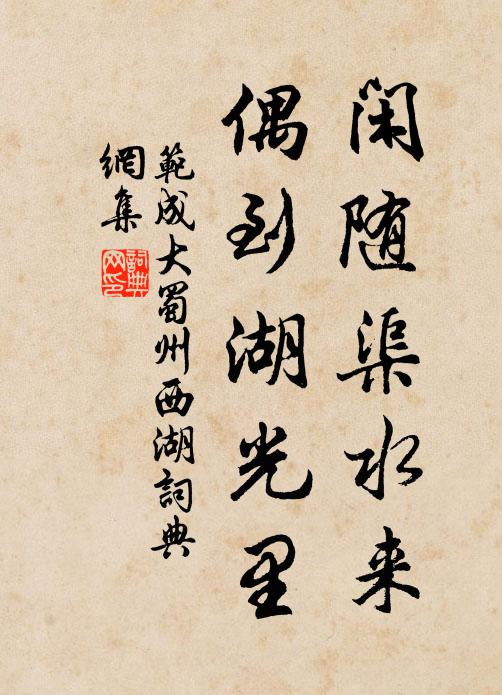 闲随渠水来
偶到湖光里
範成大蜀州西湖詞典
網集
詞典网印